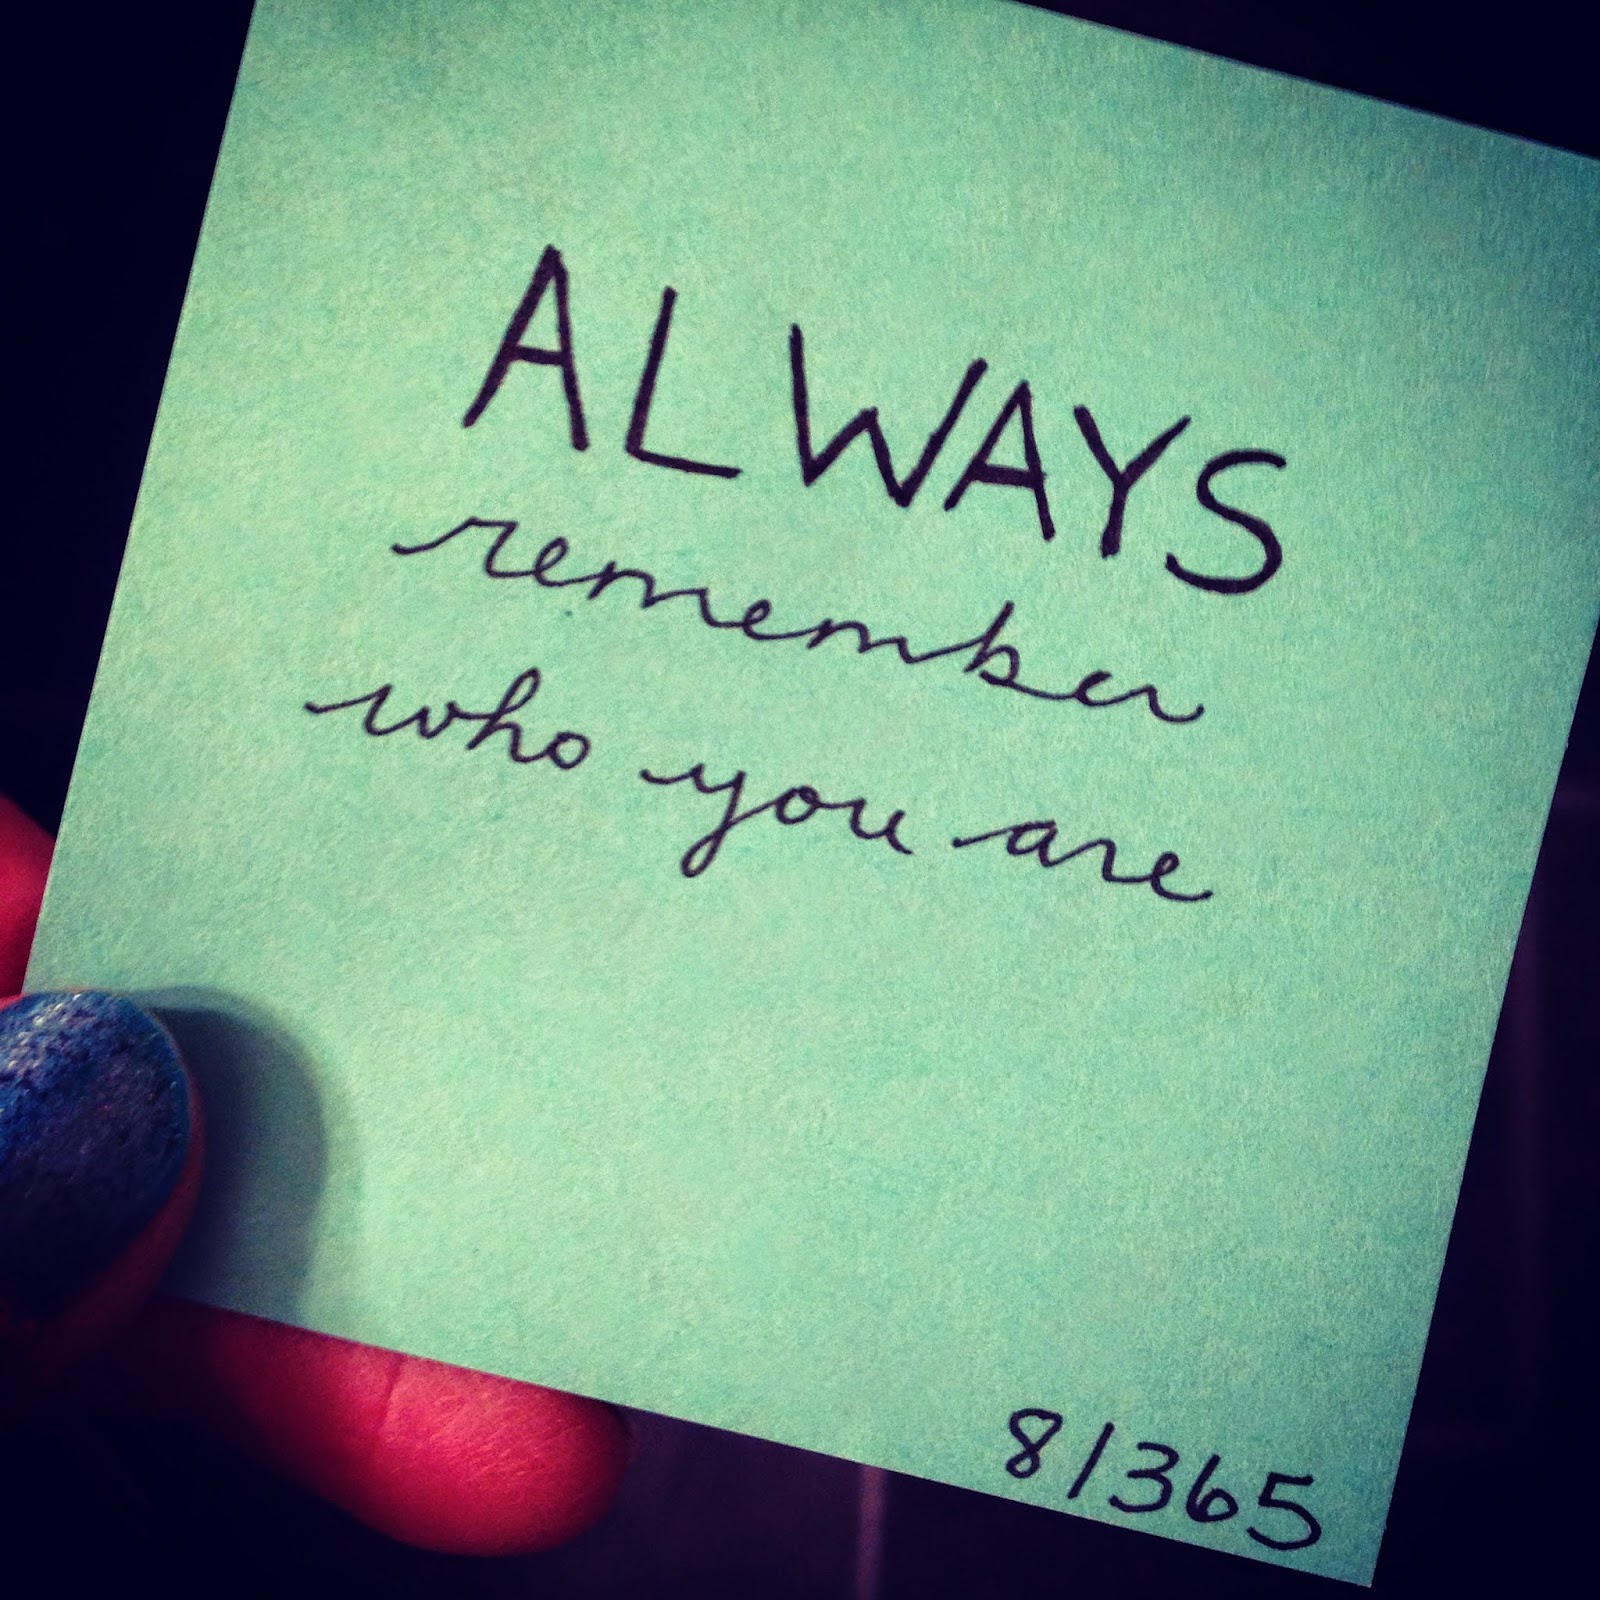 ALWAYS
remember
who you are
8/365